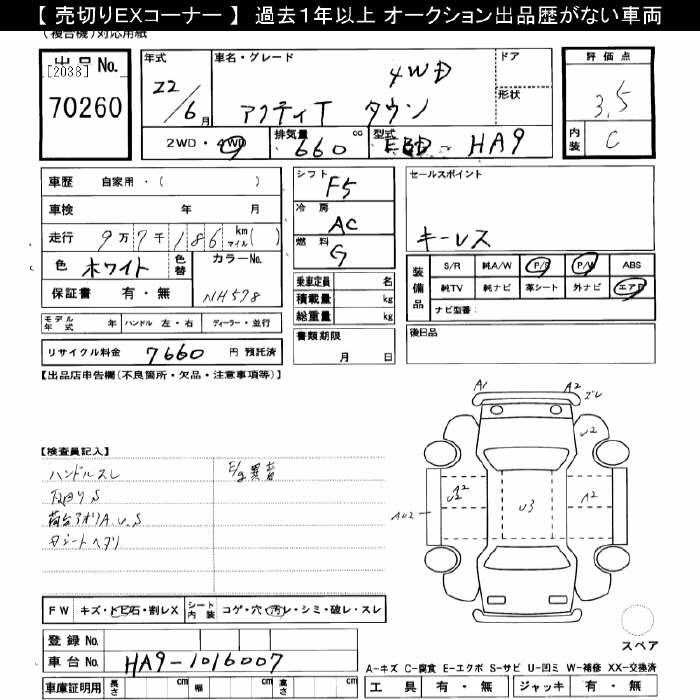 【 売切りEXコーナー 】 過去1年以上 オークション出品歴がない車両
(複合機)対応用紙
出品No.
[2038]
70260
年式
22/6月
車名・グレード
アクティT タウン
4WD
ドア
形状
評価点
3.5
内装
C
2WD・4WD
排気量
660 cc
型式
EBD-HA9
車歴 自家用・( )
車検 年 月
走行 9万7千186 km マイル( )
色 ホワイト
色替
カラーNo.
NH578
保証書 有・無
シフト
F5
冷房
AC
燃料
G
乗車定員 名
積載量 kg
総重量 kg
書類期限
月 日
セールスポイント
キーレス
装備品
S/R 純A/W P/S P/W ABS
純TV 純ナビ 革シート 外ナビ エアB
ナビ型番:
後日品
モデル年式 年 ハンドル 左・右 ディーラー・並行
リサイクル料金 7660 円 預託済
【出品店申告欄(不良箇所・欠品・注意事項等)】
【検査員記入】
ハンドルスレ
E/g異音
下回りS
荷台アオリA.U.S
シートヘタリ
A1
A2
ズレ
U2
A2
U2
U3
A2
AU2
FW キズ・トビ石・割レX
シート内装 コゲ・穴・汚レ・シミ・破レ・スレ
登録No.
車台No. HA9-1016007
車庫証明用 長さ cm 幅 cm 高さ cm
スペア
A-キズ C-腐食 E-エクボ S-サビ U-凹ミ W-補修 XX-交換済
工具 有・無 ジャッキ 有・無